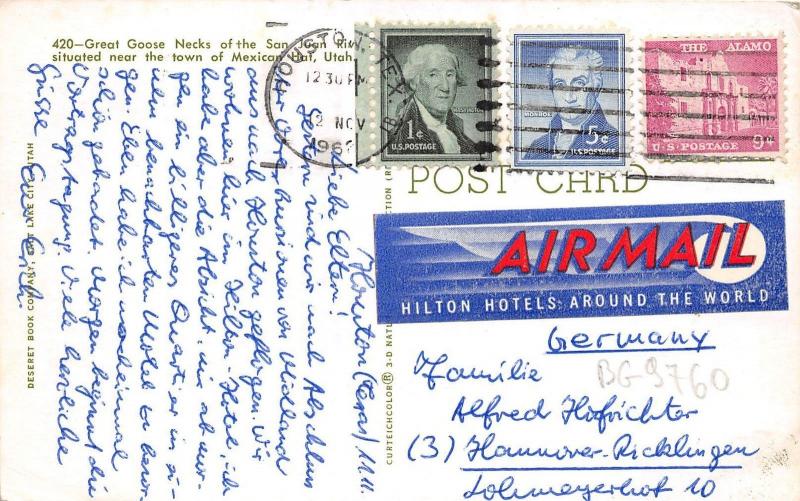 420—Great Goose Necks of the San Juan Riv
situated near the town of Mexican Hat, Utah.
HOUSTON, TEX.
12 30 PM
2 NOV
1962
WASHINGTON
1¢
U.S. POSTAGE
MONROE
5¢
U.S. POSTAGE
THE ALAMO
9¢
U.S. POSTAGE
POST CARD
AIR MAIL
HILTON HOTELS AROUND THE WORLD
DESERET BOOK COMPANY, SALT LAKE CITY, UTAH
CURTEICHCOLOR® 3-D NATU
Houston (Texas) 11.11.
Liebe Eltern!
Gestern sind wir nach Abschluss
der Exkursionen von Midland
aus nach Houston geflogen. Wir
wohnen hier im Hilton-Hotel, ich
habe aber die Absicht, mir ab mor-
gen ein billigeres Quartier in ei-
nem benachbarten Motel zu besor-
gen. Eben habe ich noch einmal
schön gebadet. Morgen beginnt die
Vortragstagung. Viele herzliche
Grüsse Euer Erich.
Germany
BG9760
Familie
Alfred Hofrichter
(3) Hannover-Ricklingen
Lohmeyerhof 10